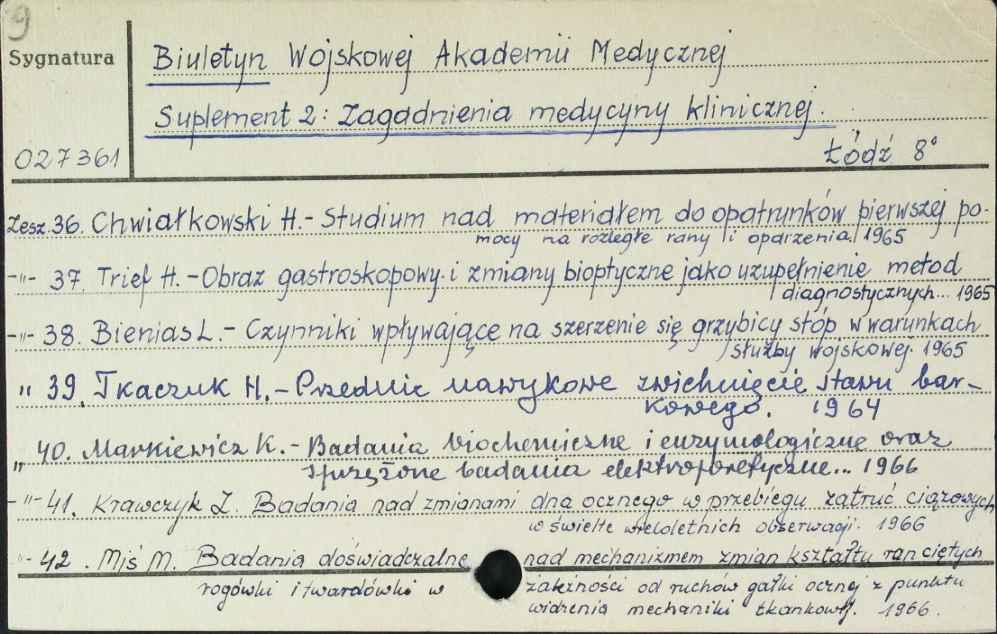 9
Sygnatura
Biuletyn Wojskowej Akademii Medycznej
Suplement 2: Zagadnienia medycyny klinicznej.
027361
Łódź 8°
Zesz. 36. Chwiałkowski H. - Studium nad materiałem do opatrunków pierwszej po-
mocy na rozległe rany i oparzenia. 1965
-"- 37. Trief H. - Obraz gastroskopowy i zmiany bioptyczne jako uzupełnienie metod
diagnostycznych... 1965
-"- 38. Bienias L. - Czynniki wpływające na szerzenie się grzybicy stóp w warunkach
służby wojskowej. 1965
" 39. Tkaczuk H. - Przednie nawykowe zwichnięcie stawu bar-
kowego. 1964
" 40. Markiewicz K. - Badania biochemiczne i enzymologiczne oraz
sprzężone badania elektroforetyczne... 1966
-"- 41. Krawczyk Z. Badania nad zmianami dna ocznego w przebiegu zatruć ciążowych
w świetle wieloletnich obserwacji. 1966
-"- 42. Miś M. Badania doświadczalne nad mechanizmem zmian kształtu ran ciętych
rogówki i twardówki w zależności od ruchów gałki ocznej z punktu
widzenia mechaniki tkankowej. 1966.